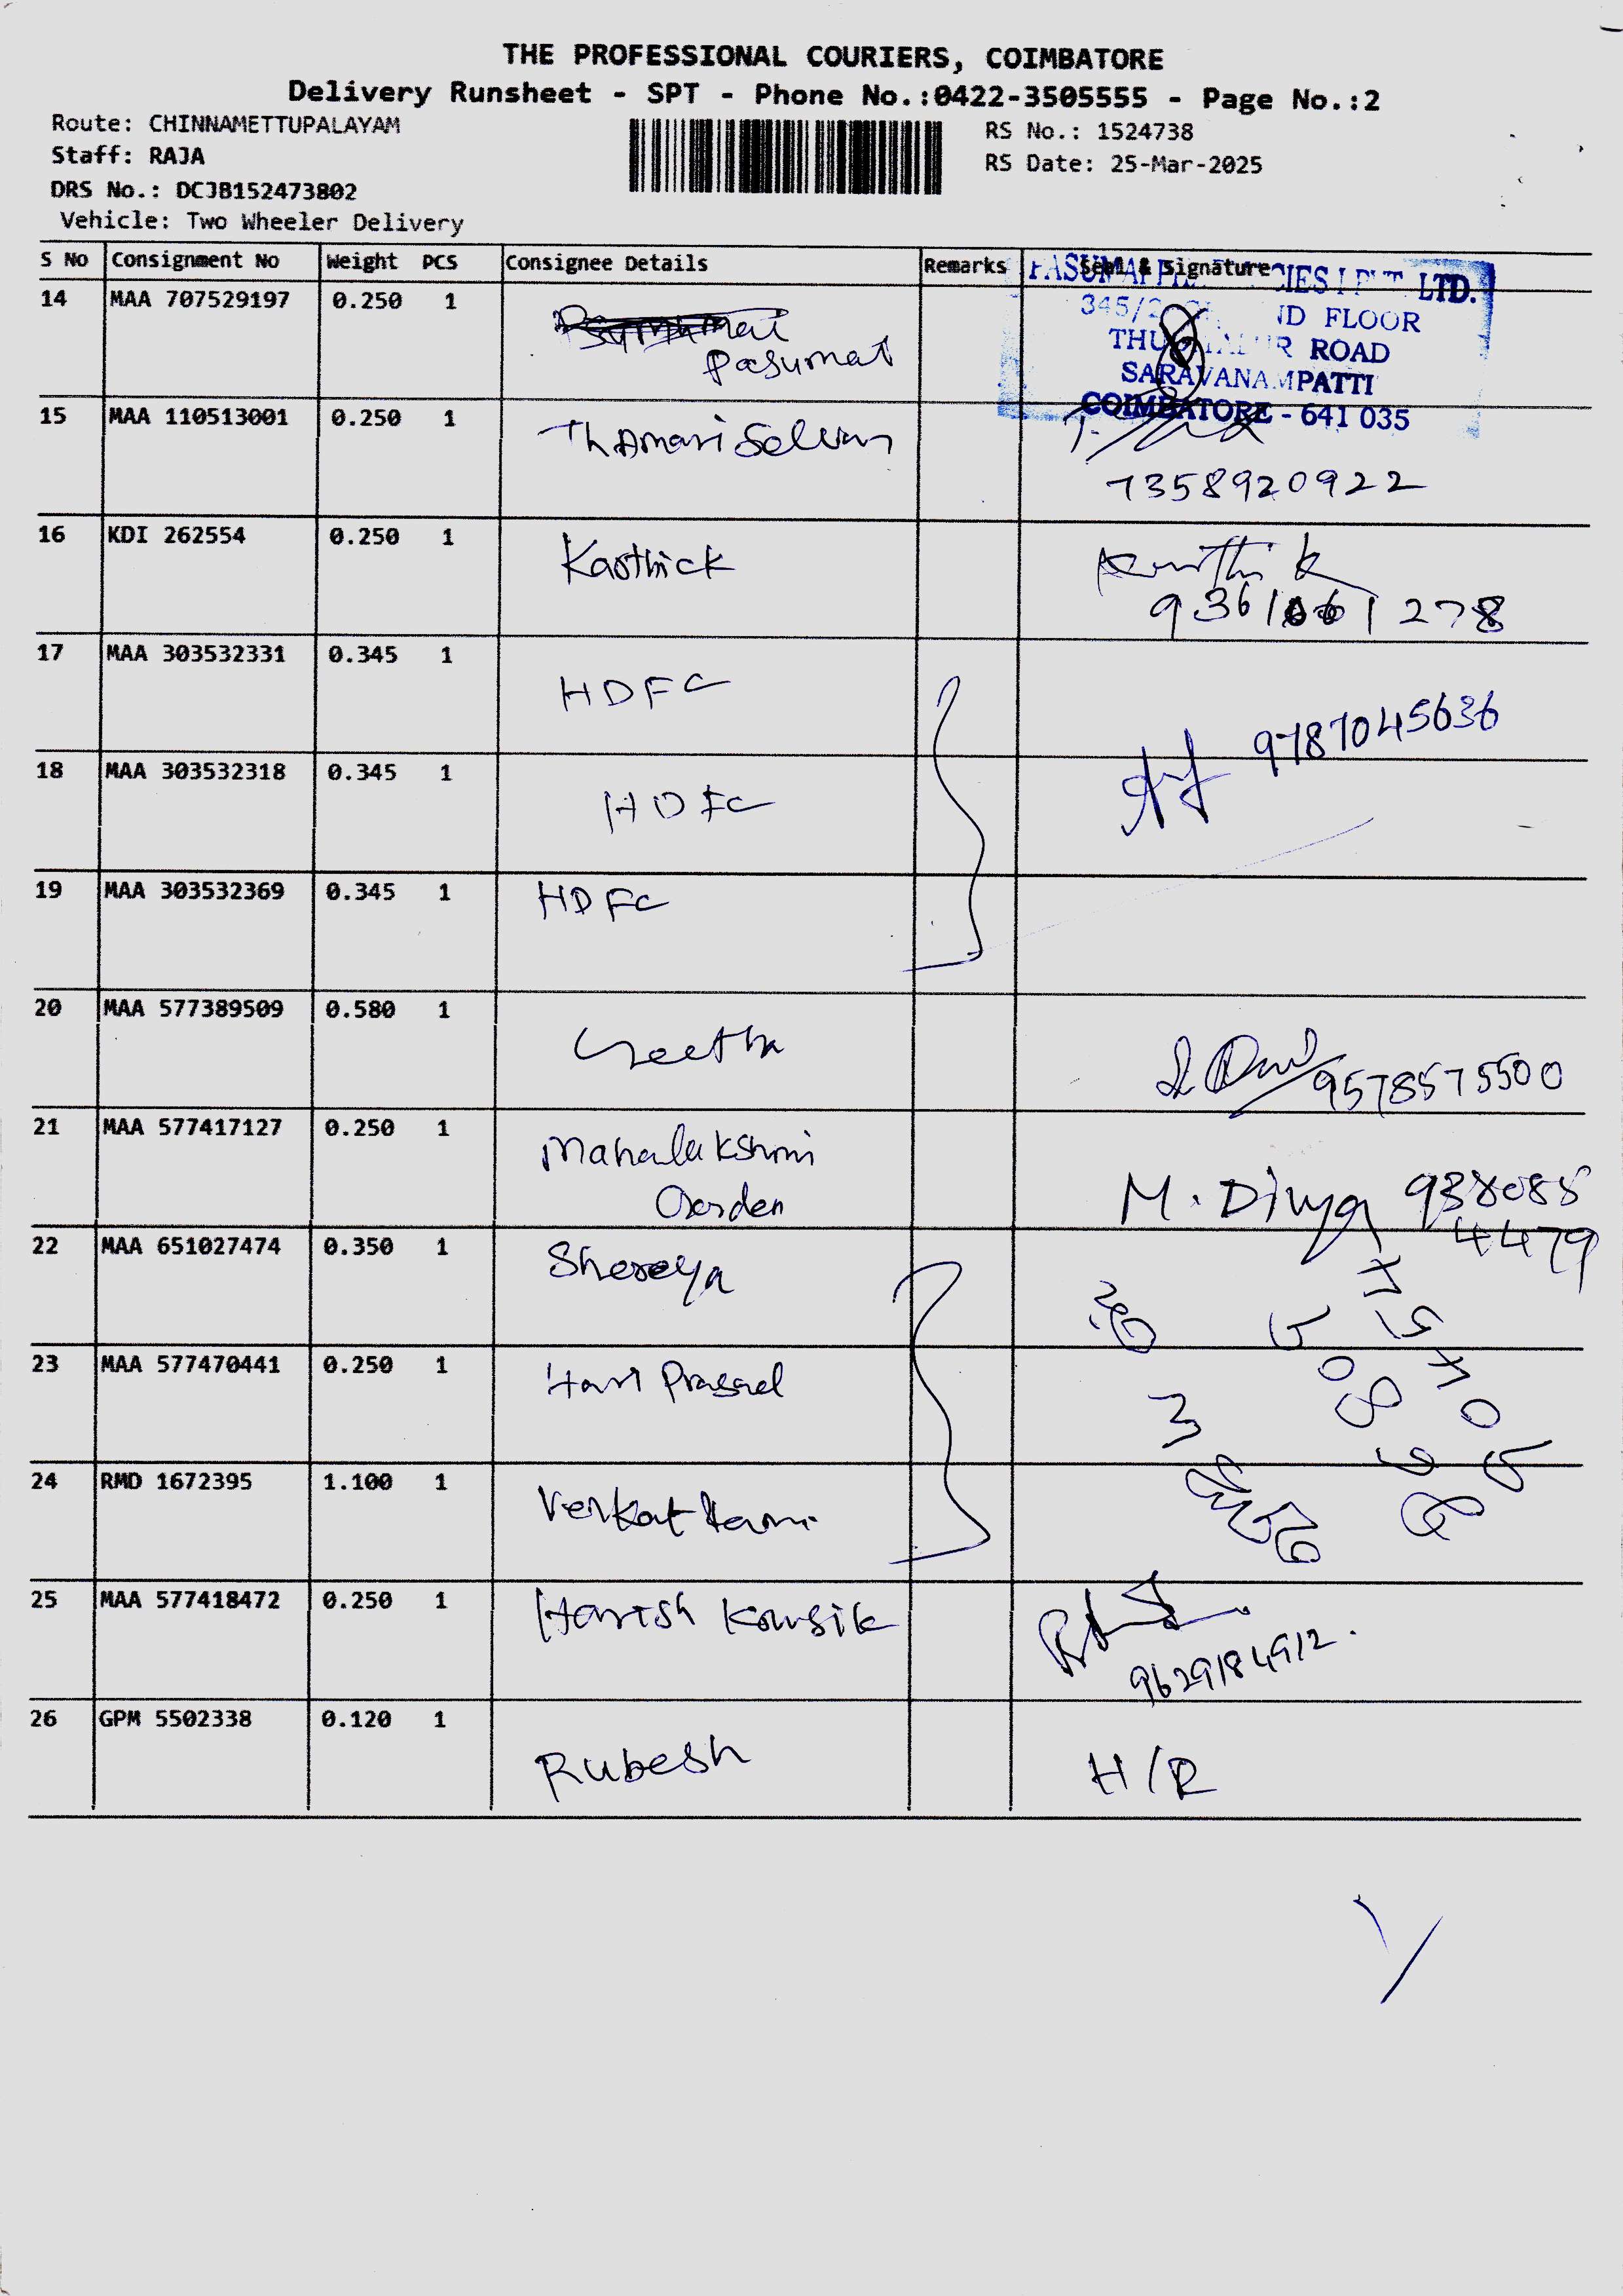 THE PROFESSIONAL COURIERS, COIMBATORE
Delivery Runsheet - SPT - Phone No.:0422-3505555 - Page No.:2
Route: CHINNAMETTUPALAYAM
Staff: RAJA
DRS No.: DCJB152473802
Vehicle: Two Wheeler Delivery
RS No.: 1524738
RS Date: 25-Mar-2025
S No Consignment No Weight PCS Consignee Details Remarks Seal & Signature
LTD.
345/2 ND FLOOR
ROAD
SARAVANAMPATTI
COIMBATORE - 641 035
14 MAA 707529197 0.250 1
Pasumai
15 MAA 110513001 0.250 1 ThAmariSelvan
7358920922
16 KDI 262554 0.250 1 Karthick Karthik
17 MAA 303532331 0.345 1 HDFC 9787045636
18 MAA 303532318 0.345 1 HDFC
19 MAA 303532369 0.345 1 HDFC
20 MAA 577389509 0.580 1 Geetha 9578575500
21 MAA 577417127 0.250 1 Mahalakshmi M. Divya 938088
Garden 4479
22 MAA 651027474 0.350 1 Shereya
23 MAA 577470441 0.250 1 Hari Prasad
24 RMD 1672395 1.100 1 Venkat
25 MAA 577418472 0.250 1 Harish Kowsik
9629184912.
26 GPM 5502338 0.120 1 Rubesh H/R